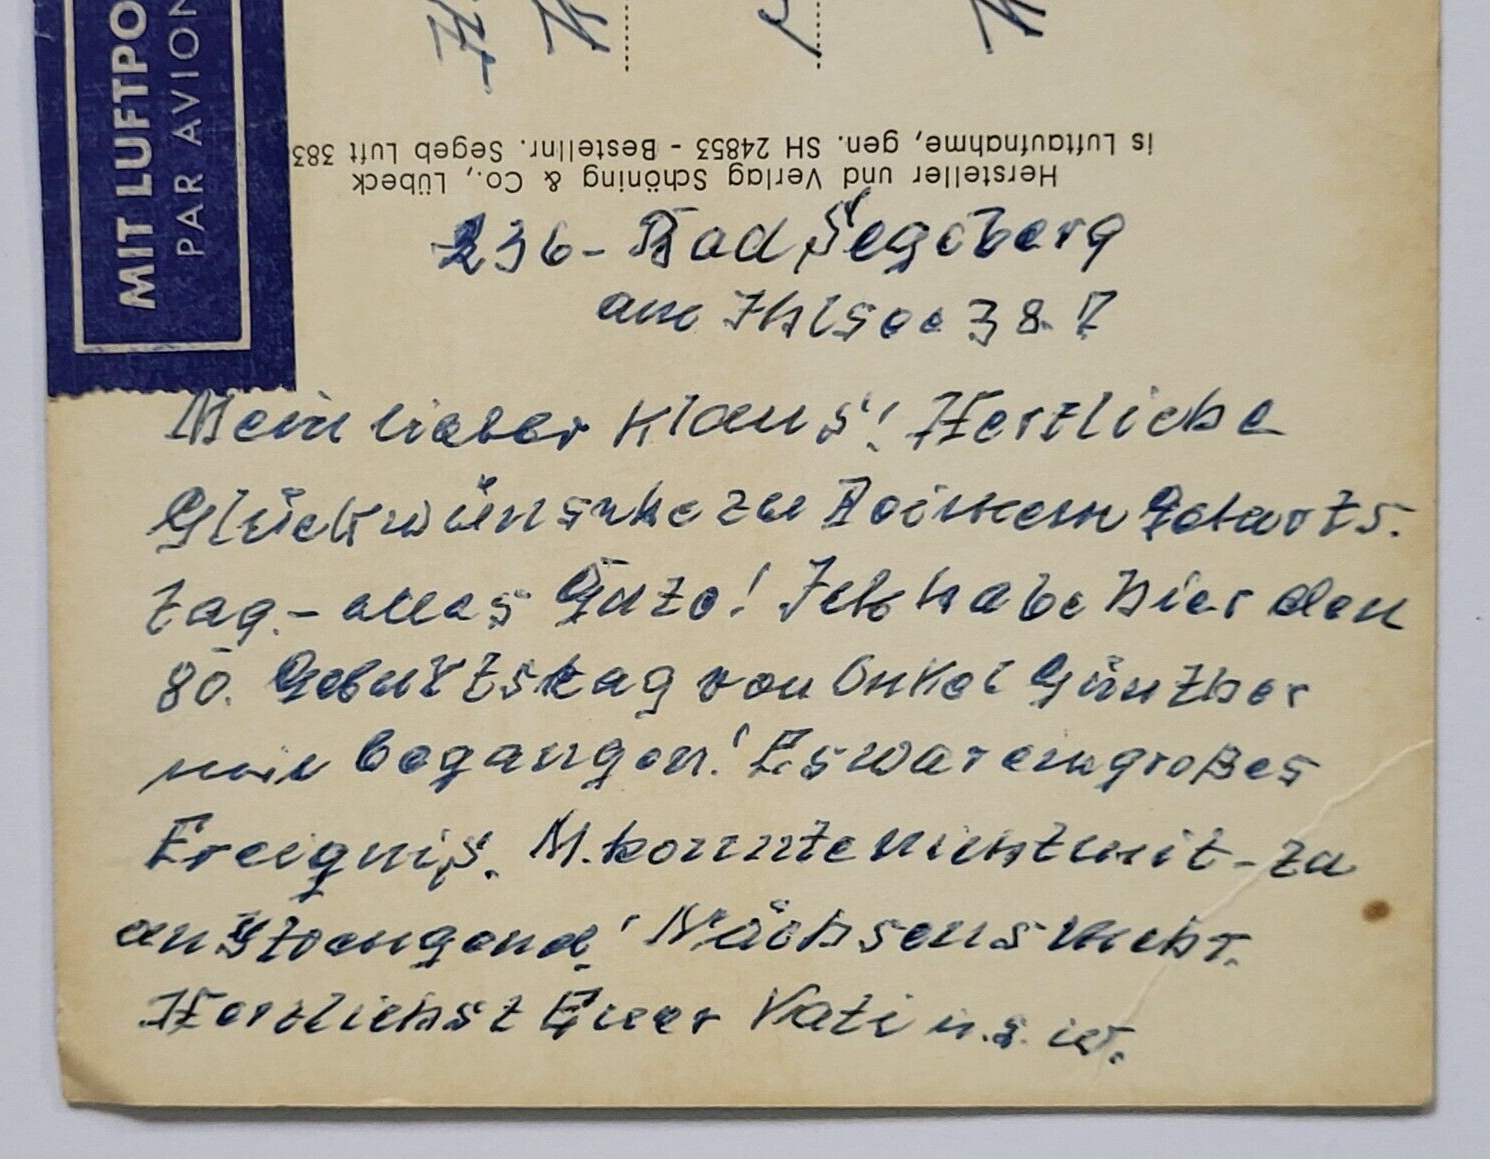 MIT LUFTPO
PAR AVION
is Luftaufnahme, gen. SH 24853 - Bestellnr. Segeb Luft 383
Hersteller und Verlag Schöning & Co., Lübeck
236- Bad Segeberg
am Ihlsee 38.7
Mein lieber Klaus! Herzliche
Glückwünsche zu Deinem Geburts-
tag.- alles Gute! Ich habe hier den
80. Geburtstag von Onkel Günther
begangen! Es war ein großes
Ereignis. M. konnte nicht mit - zu
anstrengend! Nächsens mehr.
Herzlichst Euer Vati u.s.w.